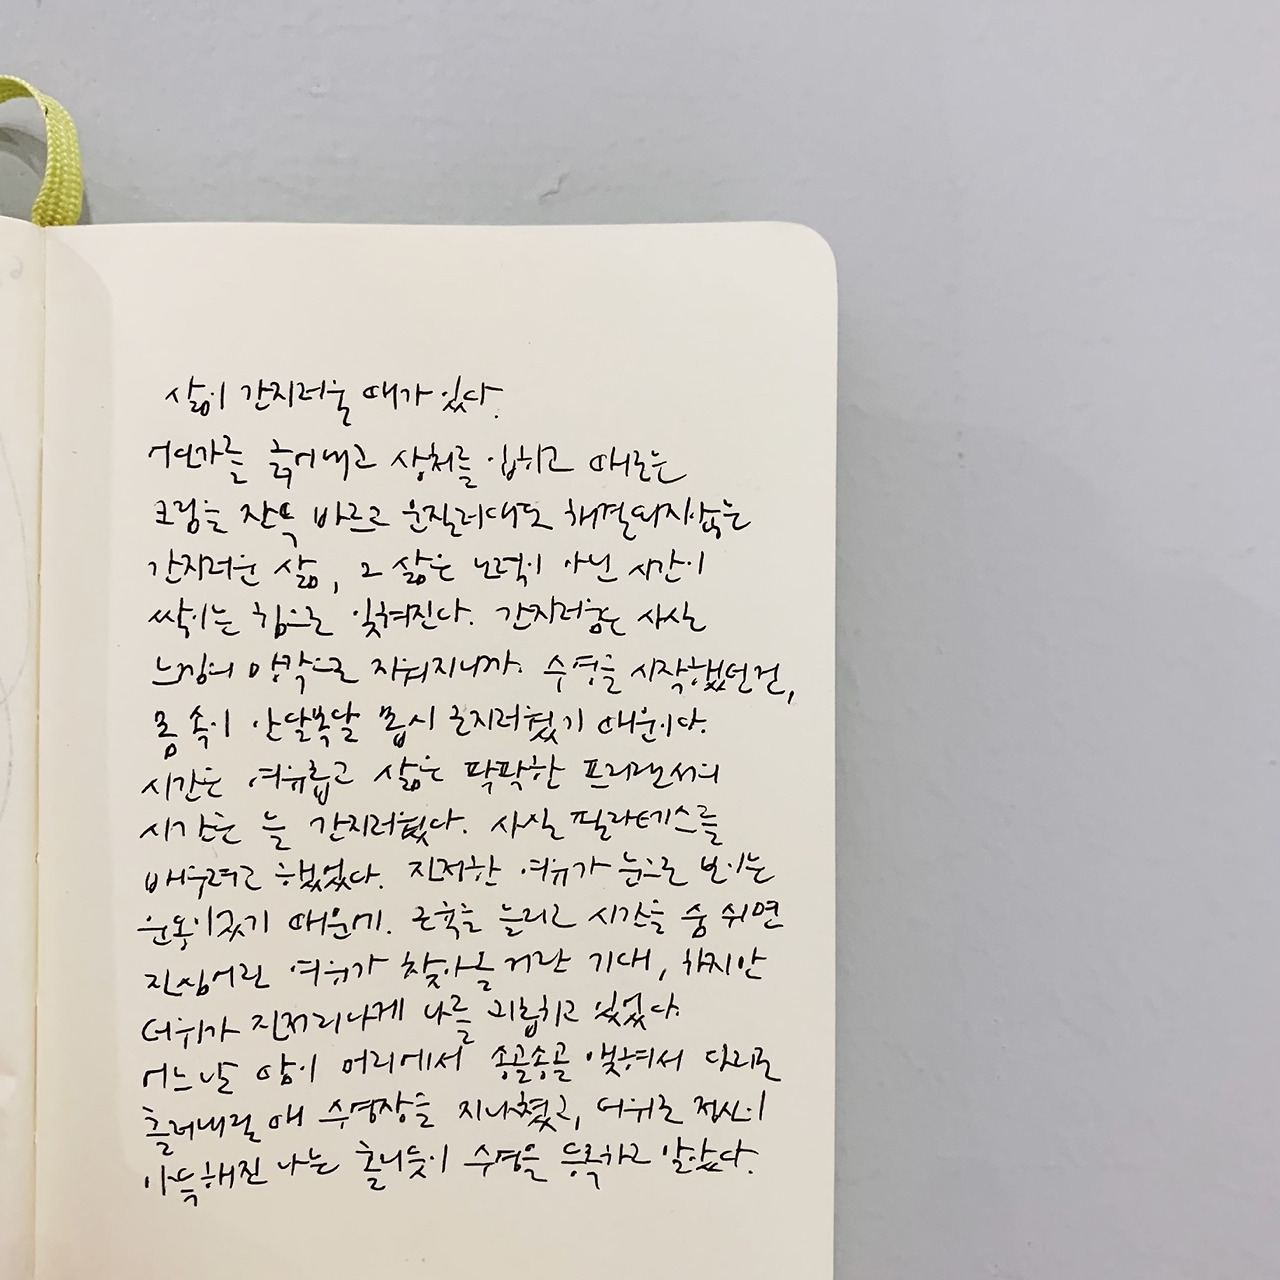 삶이 간지러울 때가 있다.
어딘가를 긁어내고 상처를 입히고 때로는
크림을 잔뜩 바르고 문질러대도 해결되지않는
간지러운 삶, 그 삶은 노력이 아닌 시간이
쌓이는 힘으로 잊혀진다. 간지러움은 사실
느낌의 망각으로 지워지니까. 수영을 시작했던건,
몸 속이 안달복달 몹시 근지러웠기 때문이다.
시간은 여유롭고 삶은 팍팍한 프리랜서의
시간은 늘 간지러웠다. 사실 필라테스를
배우려고 했었다. 진저한 여유가 눈으로 보이는
운동이었기 때문에. 근육을 늘리고 시간을 숨 쉬면
진심어린 여유가 찾아올 거란 기대, 하지만
더위가 진저리나게 나를 괴롭히고 있었다.
어느 날 땀이 머리에서 송골송골 맺혀서 다리로
흘러내릴 때 수영장을 지나쳤고, 더위로 정신이
아득해진 나는 홀리듯이 수영을 등록하고 말았다.